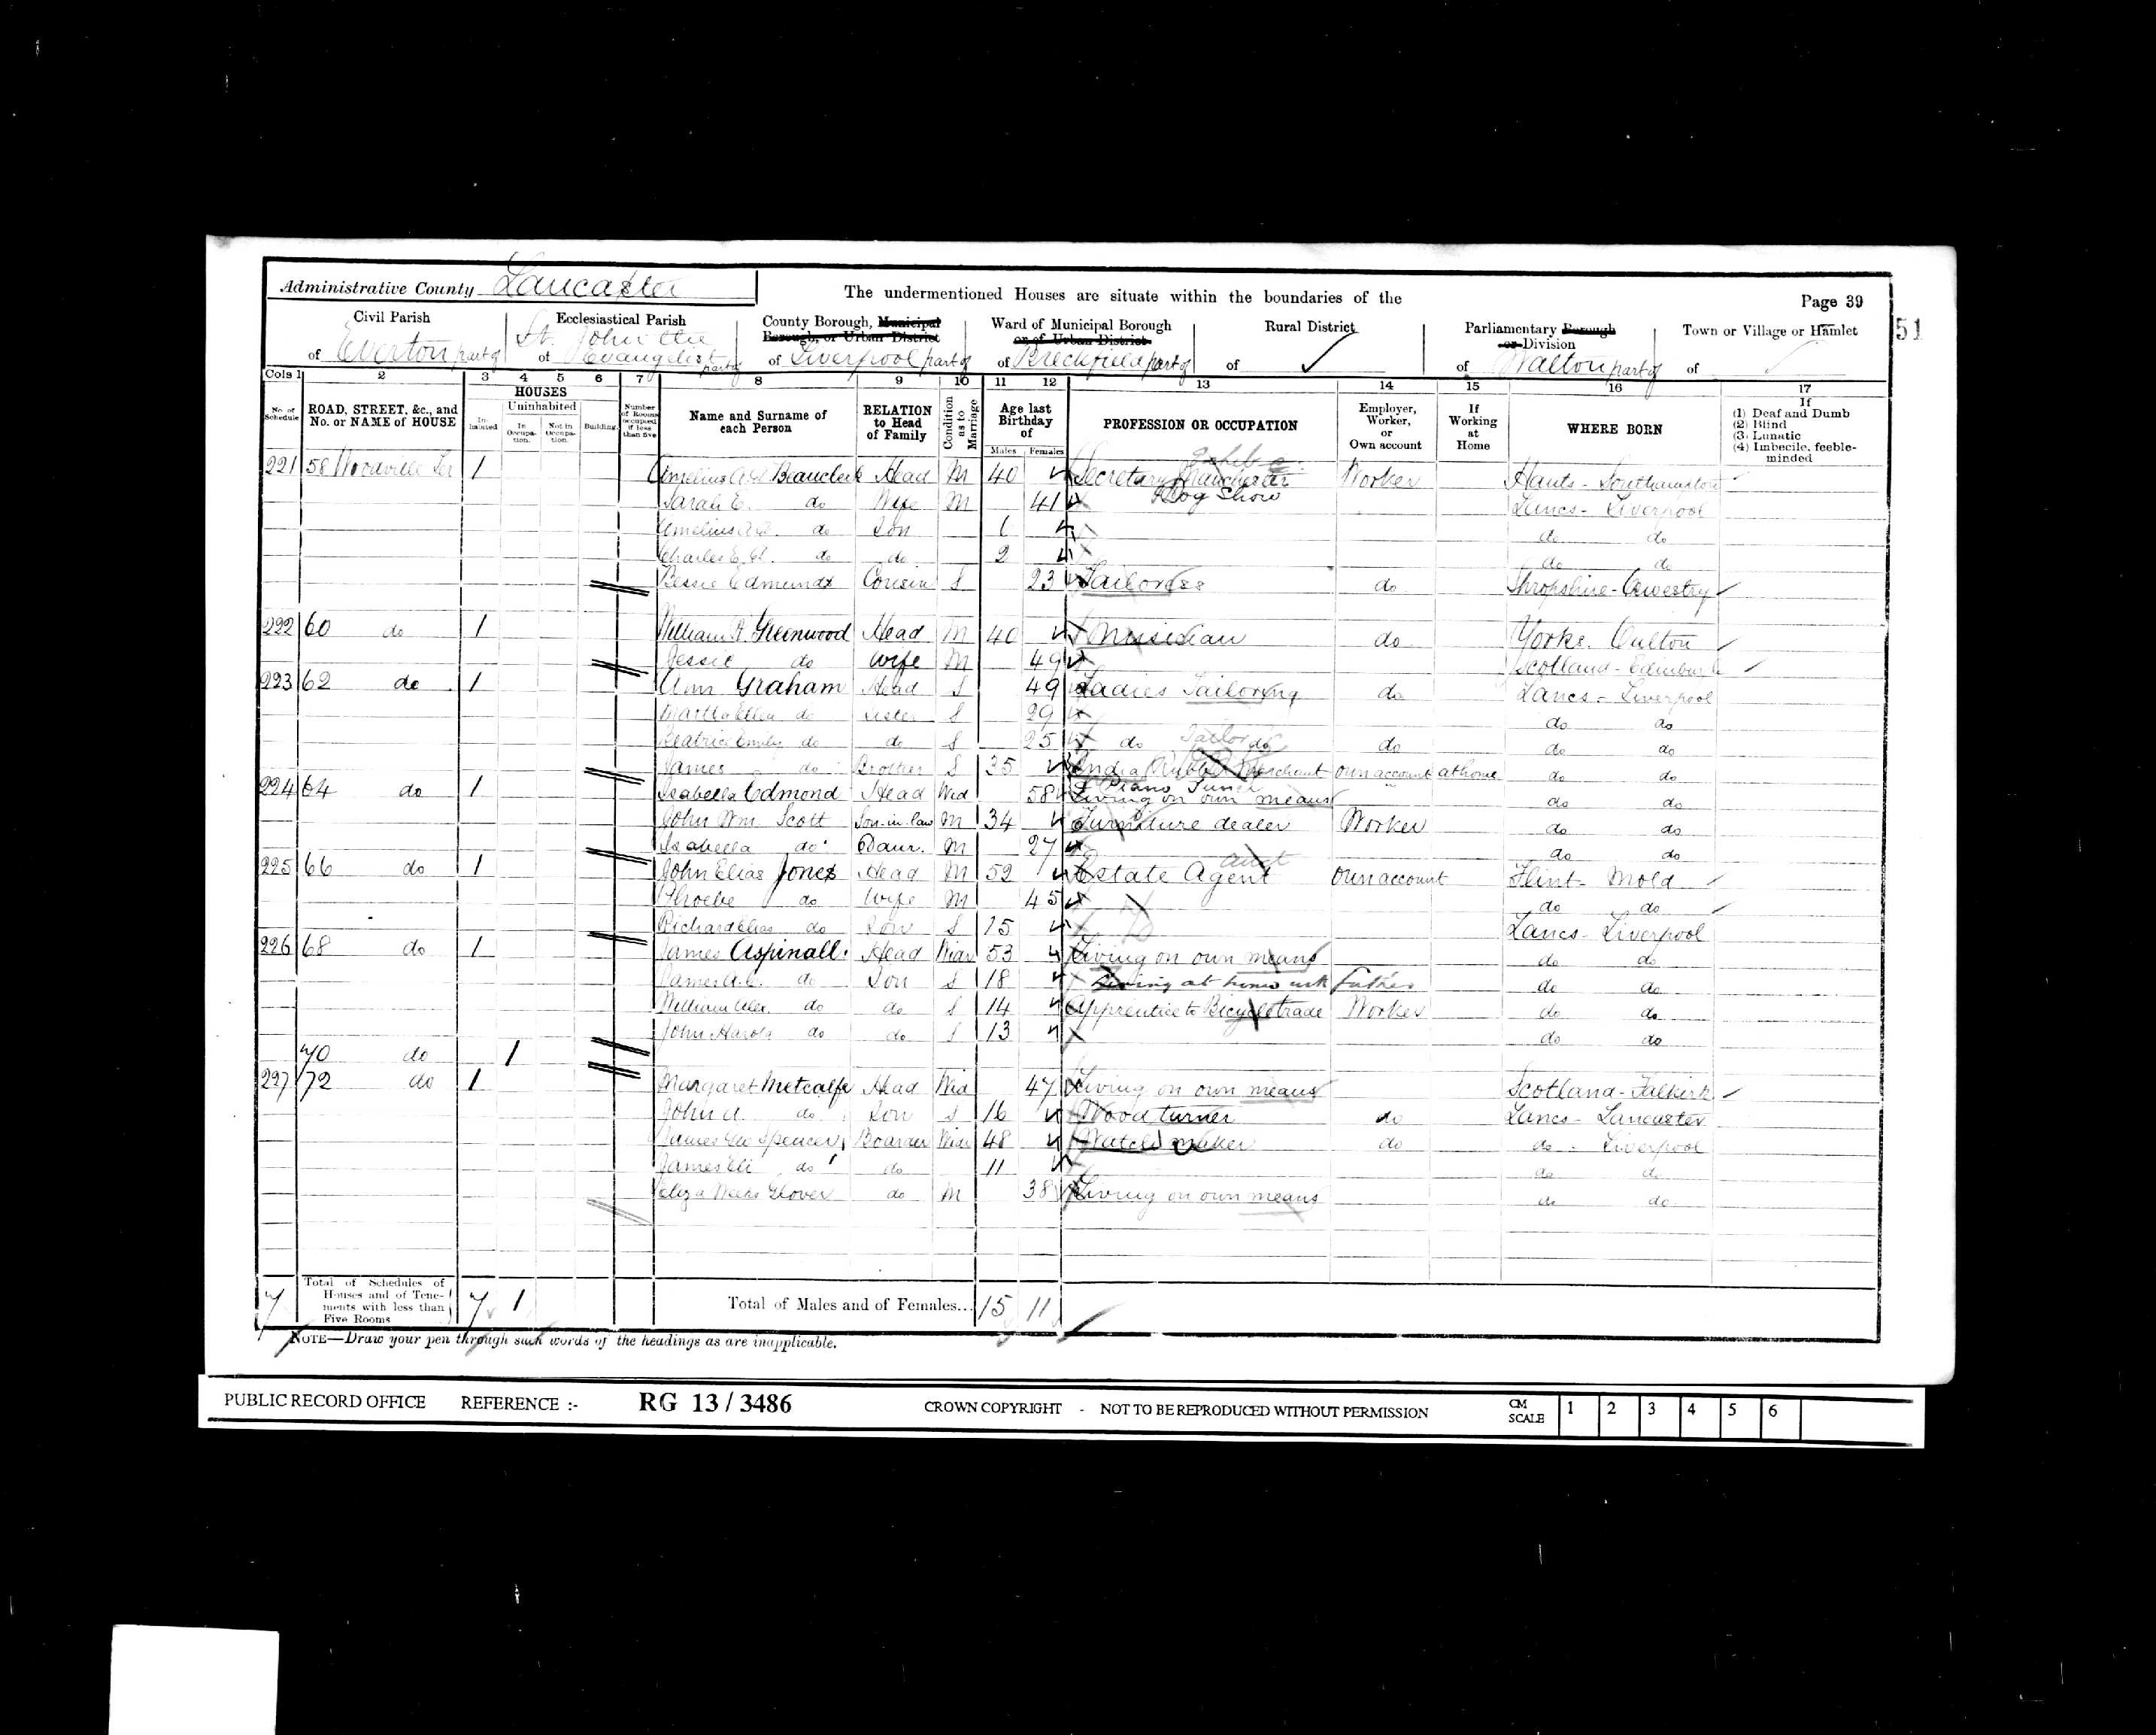 Administrative County Lancaster
The undermentioned Houses are situate within the boundaries of the
Page 39
51
Civil Parish of Everton part of
Ecclesiastical Parish of St. John the Evangelist part of
County Borough, Municipal Borough, or Urban District of Liverpool part of
Ward of Municipal Borough or of Urban District of Breckfield part of
Rural District of
Parliamentary Borough or Division of Walton part of
Town or Village or Hamlet of
Cols 1 2 3 4 5 6 7 8 9 10 11 12 13 14 15 16 17
No. of Schedule
ROAD, STREET, &c., and No. or NAME of HOUSE
HOUSES
In-habited
Uninhabited
In Occupa-tion.
Not in Occupa-tion.
Building.
Number of Rooms occupied if less than five
Name and Surname of each Person
RELATION to Head of Family
Condition as to Marriage
Age last Birthday of
Males Females
PROFESSION OR OCCUPATION
Employer, Worker, or Own account
If Working at Home
WHERE BORN
If
(1) Deaf and Dumb
(2) Blind
(3) Lunatic
(4) Imbecile, feeble-minded
221 58 Woodville Ter 1 Amelius A. W. Beauclerk Head M 40 Secretary Manchester Worker Hants - Southampton
Dog Show
Sarah E. do Wife M 41 Lancs - Liverpool
Amelius do Son 6 do do
Charles E. do do 2 do do
Bessie Edmunds Cousin S 23 Tailoress do Shropshire - Oswestry
222 60 do 1 William H. Greenwood Head M 40 Musician do Yorks. Oulton
Jessie do Wife M 49 Scotland - Edinburgh
223 62 do 1 Ann Graham Head S 49 Ladies Tailoring do Lancs - Liverpool
Martha Ellen do Sister S 29 do do
Tailor
Beatrice Emily do do S 25 do do do do do
James do Brother S 35 India Rubber Merchant own account at home do do
Piano Tuner
224 64 do 1 Isabella Edmond Head Wid 58 Living on own means do do
John Wm Scott Son-in-law M 34 Furniture dealer Worker do do
Isabella do Daur. M 27 do do
225 66 do 1 John Elias Jones Head M 52 Estate Agent own account Flint - Mold
Phoebe do Wife M 45 do do
Richard Elias do Son S 15 Lancs - Liverpool
226 68 do 1 James Aspinall Head Widr 53 Living on own means do do
James A. do Son S 18 Living at home with Father do do
William Alex. do do S 14 Apprentice to Bicycle trade Worker do do
John Harold do do S 13 do do
70 do 1
227 72 do 1 Margaret Metcalfe Head Wid 47 Living on own means Scotland - Falkirk
John A. do Son S 16 Wood turner do Lancs - Lancaster
James Geo Spencer Boarder Widr 48 Watch maker do do - Liverpool
James Eli do do 11 do do
Eliza Glover do M 38 Living on own means do do
7 Total of Schedules of Houses and of Tene-ments with less than Five Rooms 7 1 Total of Males and of Females... 15 11
NOTE—Draw your pen through such words of the headings as are inapplicable.
PUBLIC RECORD OFFICE REFERENCE :- RG 13 / 3486 CROWN COPYRIGHT - NOT TO BE REPRODUCED WITHOUT PERMISSION CM SCALE 1 2 3 4 5 6